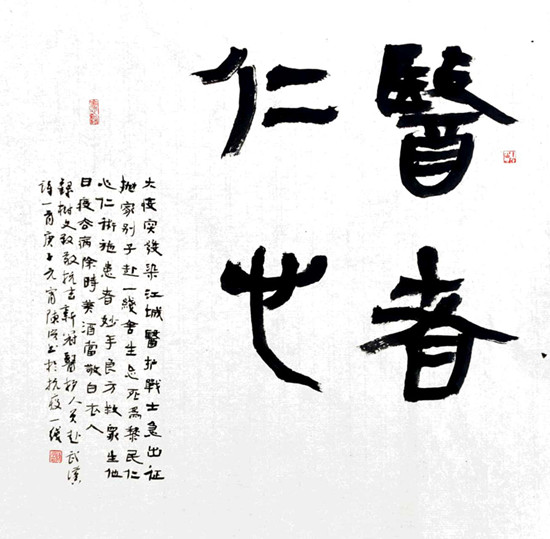 醫者
仁也
大疫突發染江城醫护戰士急出征
抛家別子赴一綫舍生忘死為黎民仁
心仁術施患者妙手良方救衆生他
日疫去病除時美酒當敬白衣人
錄樹文致敬抗击新冠醫护人员赴武漢
詩一首庚子元宵陳书於抗疫一綫